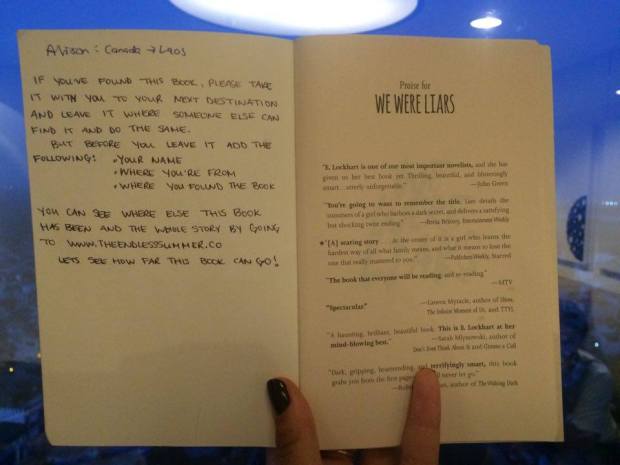 Alison : Canada → Laos
IF YOU'VE FOUND THIS BOOK, PLEASE TAKE
IT WITH YOU TO YOUR NEXT DESTINATION
AND LEAVE IT WHERE SOMEONE ELSE CAN
FIND IT AND DO THE SAME.
BUT BEFORE YOU LEAVE IT ADD THE
FOLLOWING: • YOUR NAME
• WHERE YOU'RE FROM
• WHERE YOU FOUND THE BOOK
YOU CAN SEE WHERE ELSE THIS BOOK
HAS BEEN AND THE WHOLE STORY BY GOING
TO WWW.THEENDLESSSUMMER.CO
LETS SEE HOW FAR THIS BOOK CAN GO!
Praise for
WE WERE LIARS
"E. Lockhart is one of our most important novelists, and she has
given us her best book yet. Thrilling, beautiful, and blisteringly
smart ... utterly unforgettable."
—John Green
"You're going to want to remember the title. Liars details the
summers of a girl who harbors a dark secret, and delivers a satisfying
but shocking twist ending."
—Breia Brissey, Entertainment Weekly
★"[A] searing story ... At the center of it is a girl who learns the
hardest way of all what family means, and what it means to lose the
one that really mattered to you."
—Publishers Weekly, Starred
"The book that everyone will be reading, and re-reading."
—MTV
"Spectacular."
—Lauren Myracle, author of Bliss,
The Infinite Moment of Us, and TTYL
"A haunting, brilliant, beautiful book. This is E. Lockhart at her
mind-blowing best."
—Sarah Mlynowski, author of
Don't Even Think About It and Gimme a Call
"Dark, gripping, heartrending, and terrifyingly smart, this book
grabs you from the first page never let go."
author of The Waking Dark